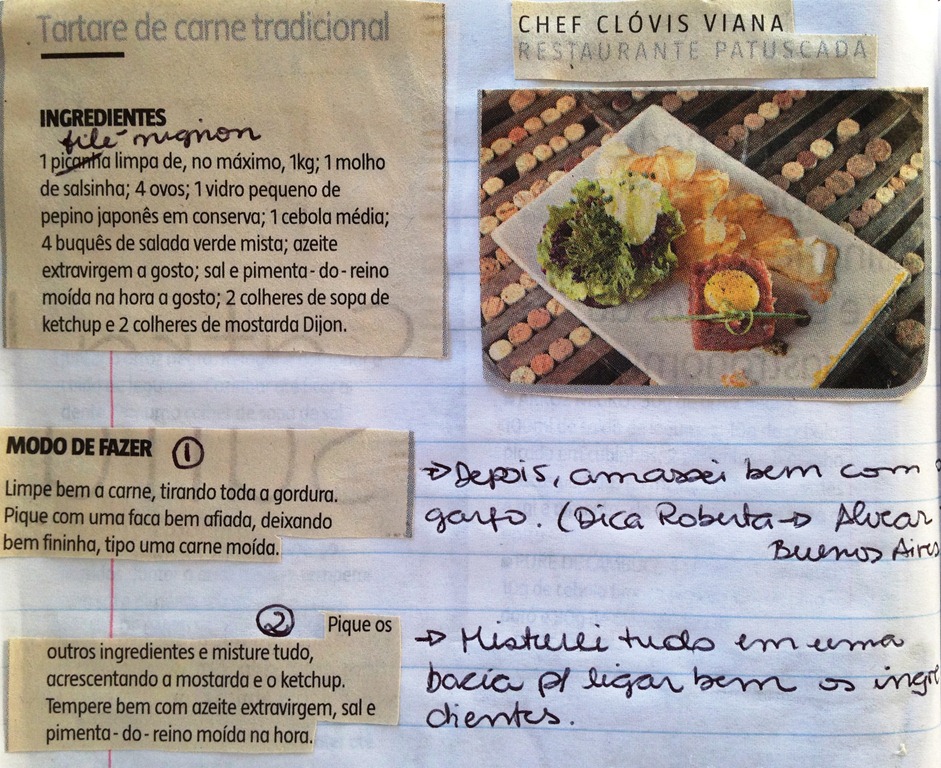 Tartare de carne tradicional
CHEF CLÓVIS VIANA
RESTAURANTE PATUSCADA
INGREDIENTES
filé mignon
1 picanha limpa de, no máximo, 1kg; 1 molho
de salsinha; 4 ovos; 1 vidro pequeno de
pepino japonês em conserva; 1 cebola média;
4 buquês de salada verde mista; azeite
extravirgem a gosto; sal e pimenta-do-reino
moída na hora a gosto; 2 colheres de sopa de
ketchup e 2 colheres de mostarda Dijon.
MODO DE FAZER 1
Limpe bem a carne, tirando toda a gordura.
Pique com uma faca bem afiada, deixando
bem fininha, tipo uma carne moída.
→ Depois, amassei bem com
garfo. (Dica Roberta → Alvear
Buenos Aires
2 Pique os
outros ingredientes e misture tudo,
acrescentando a mostarda e o ketchup.
Tempere bem com azeite extravirgem, sal e
pimenta-do-reino moída na hora.
→ Misturei tudo em uma
bacia p/ ligar bem os ingre
dientes.